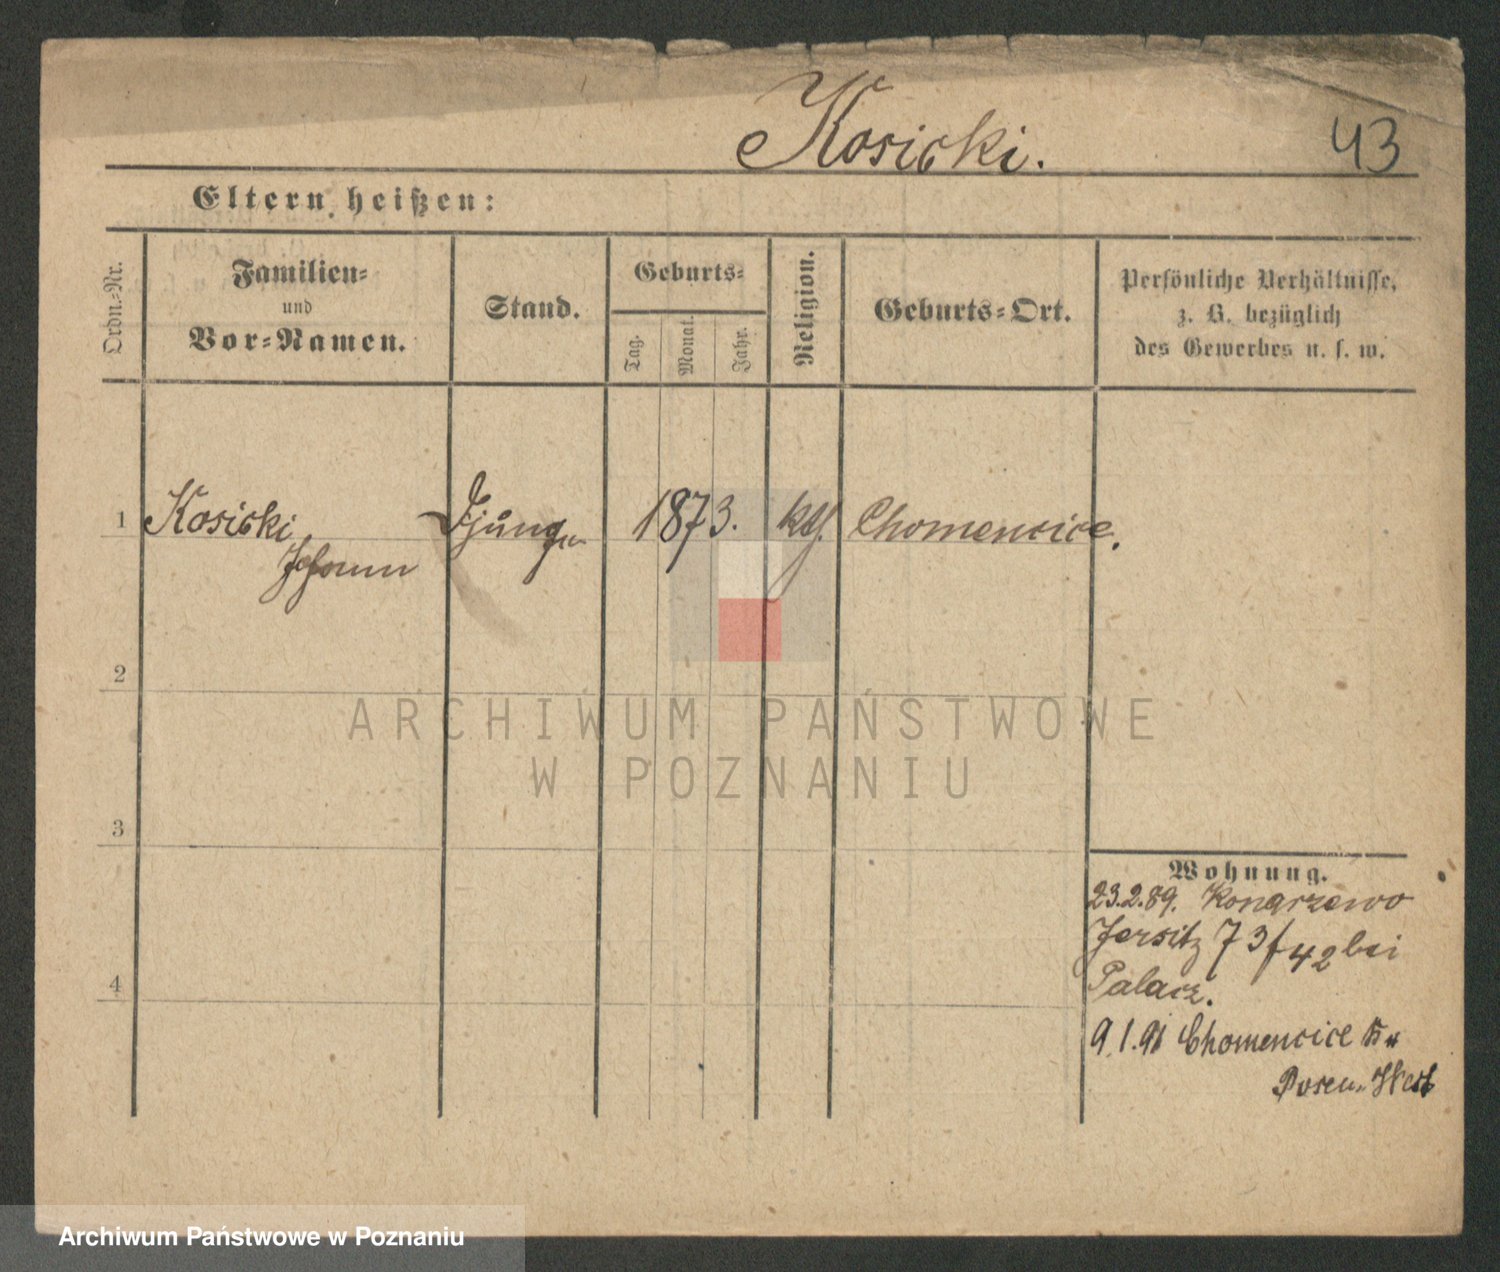 Kosicki.
43
Eltern heißen:
Ordn.-Nr.
Familien-
und
Vor-Namen.
Stand.
Geburts-
Tag.
Monat.
Jahr.
Religion.
Geburts-Ort.
Persönliche Verhältnisse,
z. B. bezüglich
des Gewerbes u. s. w.
1
Kosicki
Johann
1873.
kth.
Chomencice.
2
ARCHIWUM PAŃSTWOWE
W POZNANIU
3
4
Wohnung.
23.2.89. Konarzewo
Jersitz 73/42 bei
Palacz.
9.1.91 Chomencice Kr
Posen-West
Archiwum Państwowe w Poznaniu